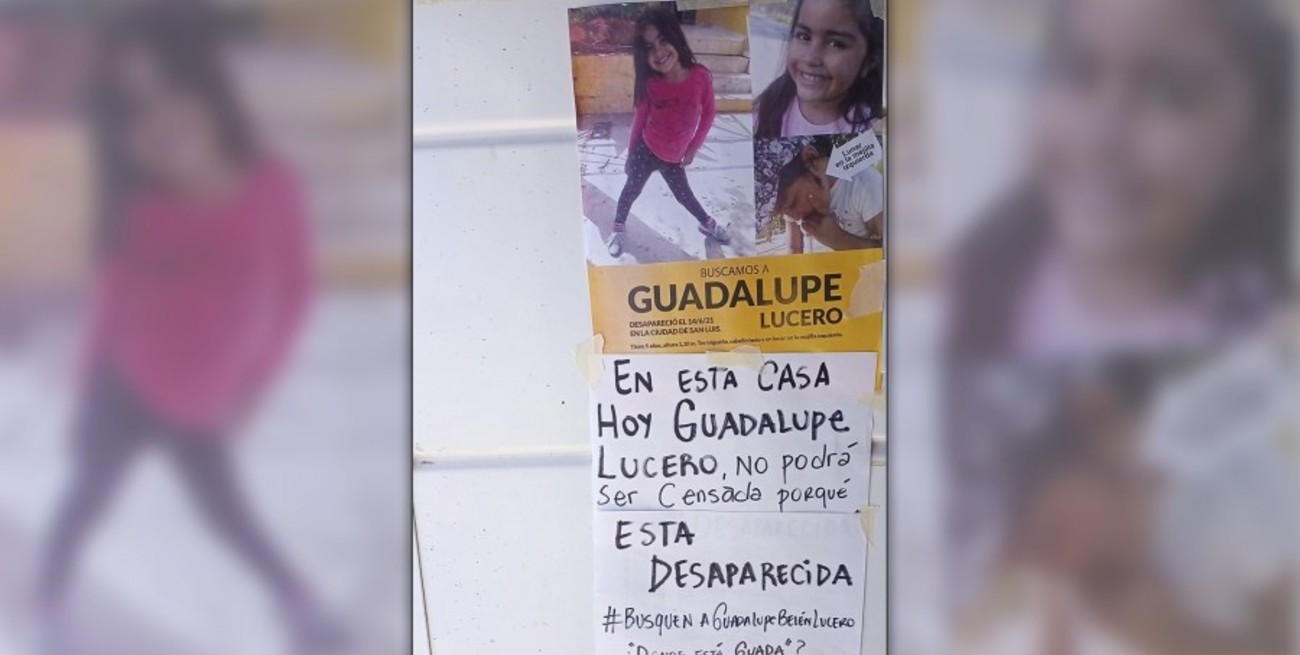 Lunar
en la mejilla
izquierda
BUSCAMOS A
GUADALUPE
LUCERO
DESAPARECIÓ EL 14/6/21
EN LA CIUDAD DE SAN LUIS.
Tiene 5 años, altura 1,10 m, Tez trigueña, cabello lacio y un lunar en la mejilla izquierda.
EN ESTA CASA
HOY GUADALUPE
LUCERO, NO podrá
ser Censada porqué
ESTA
DESAPARECIDA
#BUSQUEN A GUADALUPE BELÉN LUCERO
"DONDE ESTÁ GUADA"?